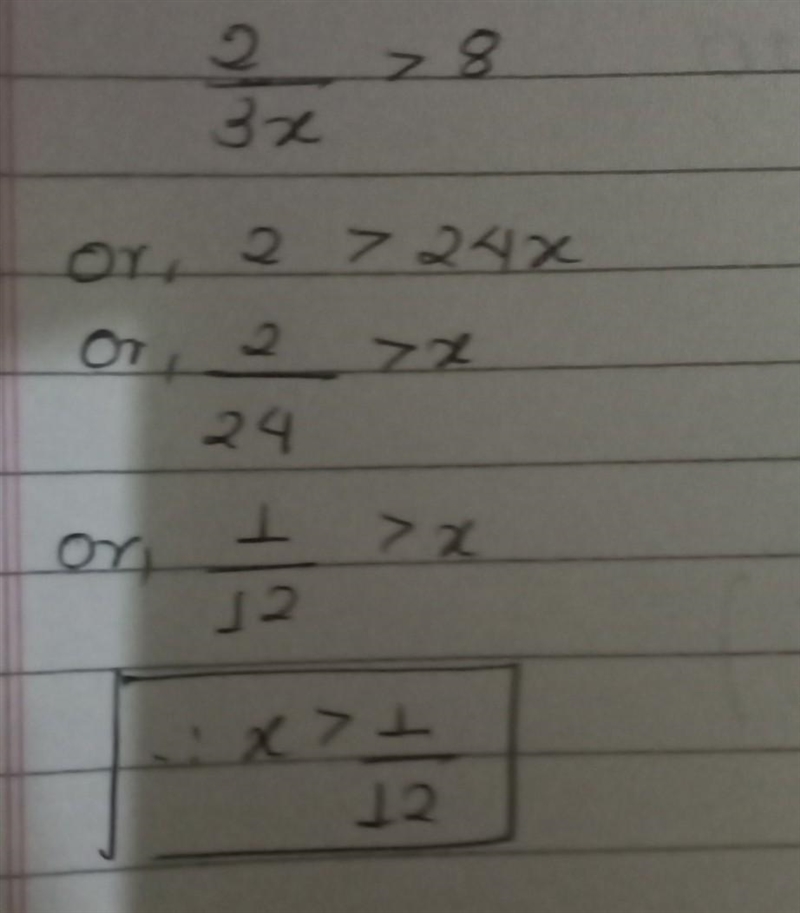 2/3x > 8
or, 2 > 24x
or, 2/24 > x
or, 1/12 > x
∴ x > 1/12